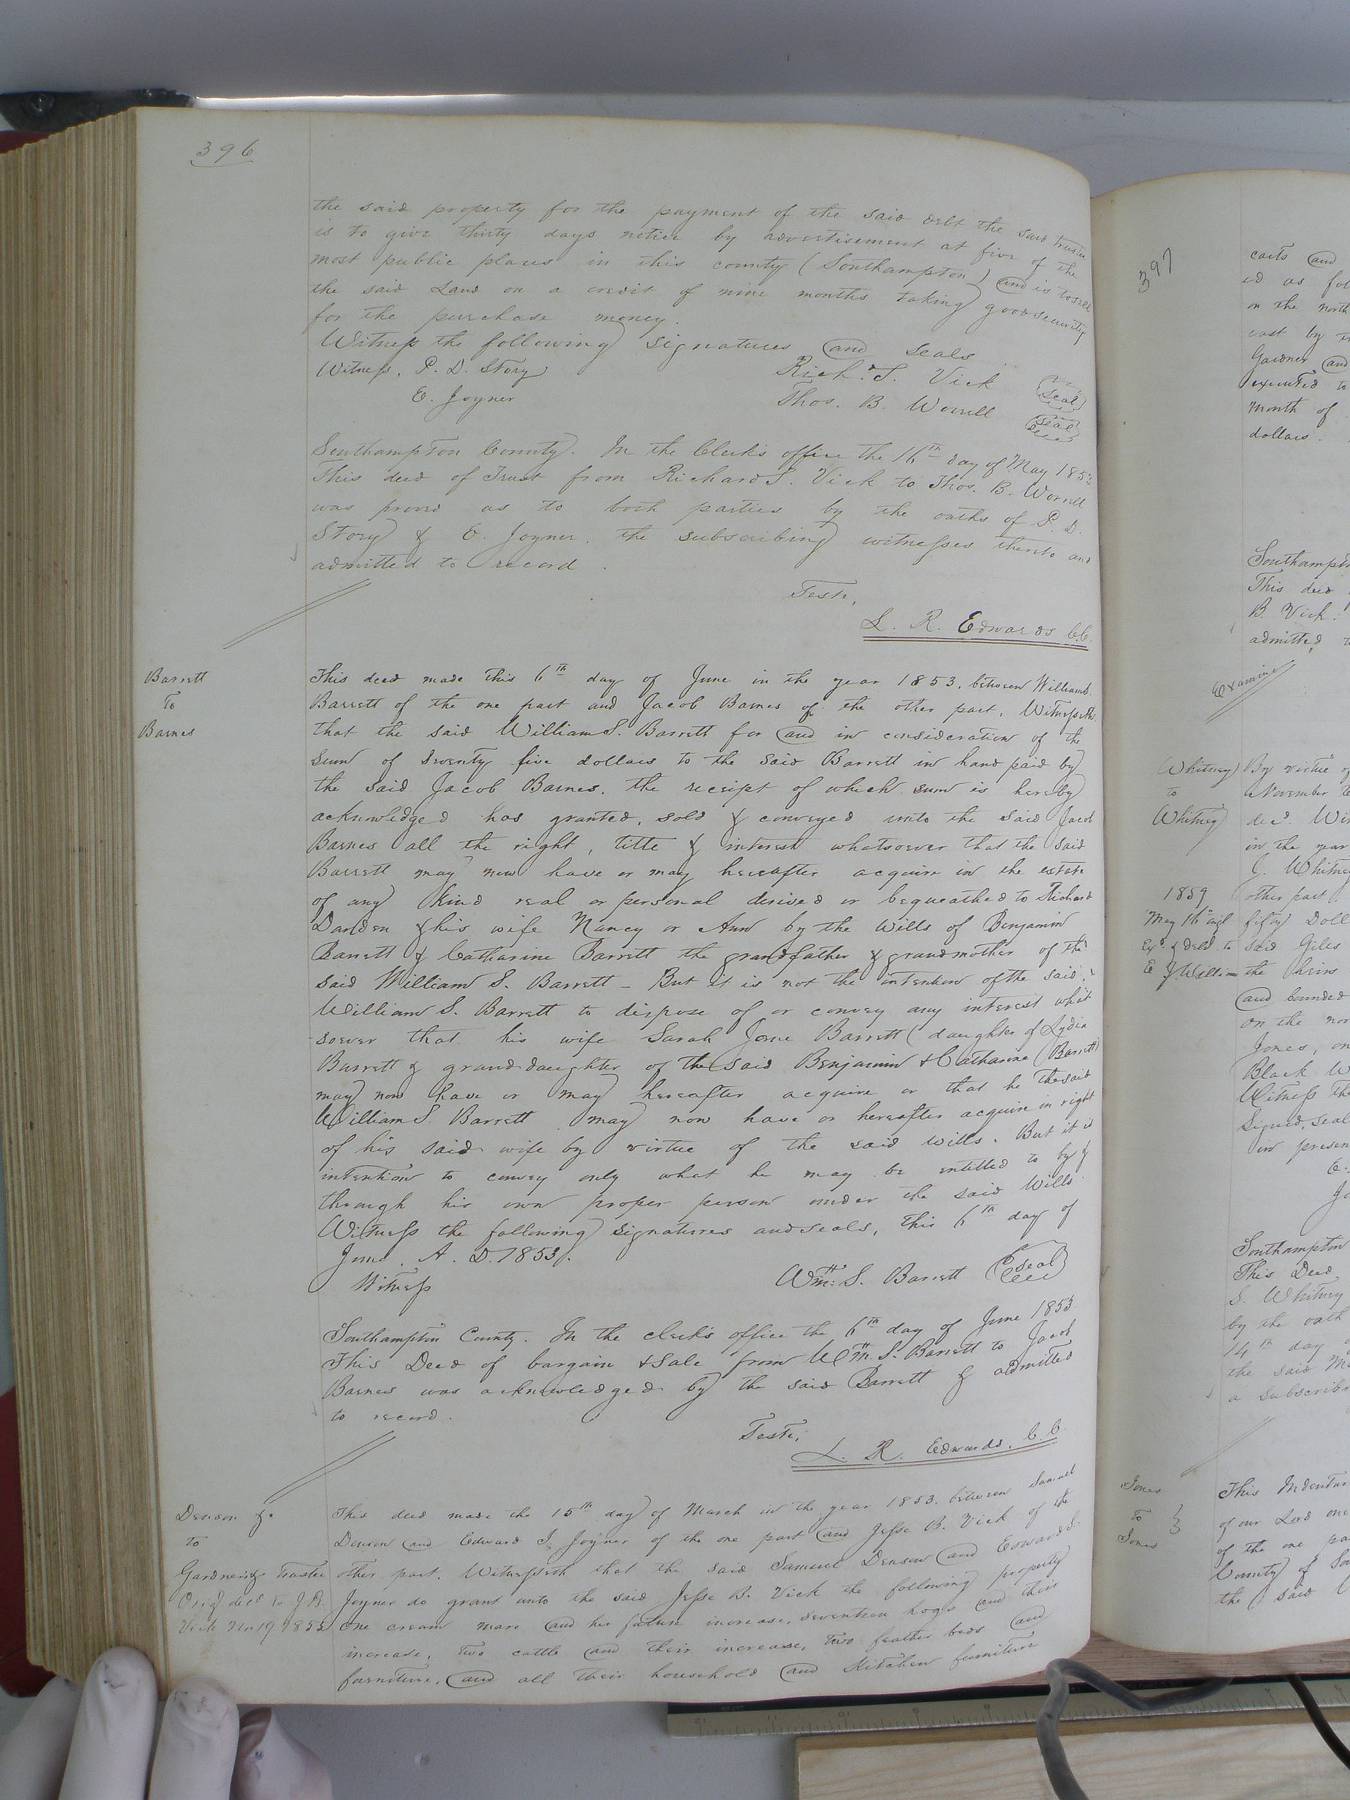 396
the said property for the payment of the said debt the said Trustee
is to give thirty days notice by advertisement at five of the
most public places in this county (Southampton) and is to sell
the said Land on a credit of nine months taking good security
for the purchase money.
Witness the following signatures and seals
Witness. P. D. Story Rich. S. Vick (seal)
E. Joyner Thos. B. Worrell (seal)
Southampton County. In the Clerk's office the 16th day of May 1853
This deed of Trust from Richard S. Vick to Thos. B. Worrell
was proved as to both parties by the oaths of P. D.
Story & E. Joyner. the subscribing witnesses thereto and
admitted to record.
Teste,
L. R. Edwards C.C.
Barrett
To
Barnes
This deed made this 6th day of June in the year 1853. between William S.
Barrett of the one part and Jacob Barnes of the other part, Witnesseth
that the said William S. Barrett for and in consideration of the
sum of seventy five dollars to the said Barrett in hand paid by
the said Jacob Barnes. the receipt of which sum is hereby
acknowledged has granted, sold & conveyed unto the said Jacob
Barnes all the right, title & interest whatsoever that the said
Barrett may now have or may hereafter acquire in the estate
of any kind real or personal devised or bequeathed to Richard
Darden & his wife Nancy or Ann by the Wills of Benjamin
Barrett & Catharine Barrett the grandfather & grandmother of the
said William S. Barrett - But it is not the intention of the said
William S. Barrett to dispose of or convey any interest what
soever that his wife Sarah Jane Barrett (daughter of Lydia
Barrett & granddaughter of the said Benjamin & Catharine Barrett)
may now have or may hereafter acquire or that he the said
William S. Barrett may now have or hereafter acquire in right
of his said wife by virtue of the said wills. But it is
intention to convey only what he may be entitled to by &
through his own proper person under the said Wills.
Witness the following signatures and seals, this 6th day of
June. A. D. 1853.
Witness Wm. S. Barrett (seal)
Southampton County. In the clerk's office the 6th day of June 1853
This Deed of bargain & Sale from Wm. S. Barrett to Jacob
Barnes was acknowledged by the said Barrett & admitted
to record.
Teste,
L. R. Edwards. C. C.
Denson &c
to
Gardner Trustee
Orig deld to J. B.
Vick 19 1855
This deed made the 15th day of March in the year 1853. between Samuel
Denson and Edward S. Joyner of the one part and Jesse B. Vick of the
other part. Witnesseth that the said Samuel Denson and Edward S.
Joyner do grant unto the said Jesse B. Vick the following property
One cream mare and her future increase, seventeen hogs and their
increase, two cattle and their increase, two feather beds and
furniture, and all their household and Kitchen furniture
397
costs and
ed as fol
on the north
east by
Gardner and
executed to
month of
dollars.
Southampt
This deed
B. Vick.
admitted
Examined
Whitney
to
Whitney
1859
By virtue of
November
decd. Wi
in the year
J. Whitne
other part
fifty Doll
said Giles
the heirs
and bounded
on the nor
Jones, on
Black W
Witness the
Signed, seal
in presen
Southampton
This Deed
S. Whitney
by the oath
14th day
the said
a subscrib
Jones
to
Jones
This Indentur
of our Lord one
of the one pa
County of So
the said